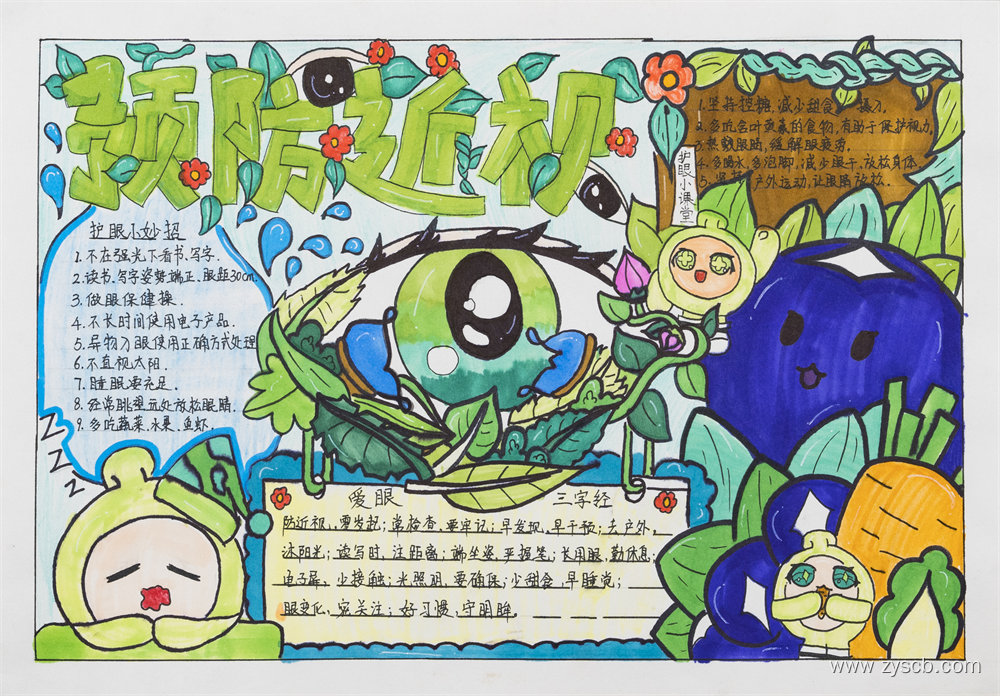 预防近视
护眼小妙招
1.不在强光下看书、写字.
2.读书、写字姿势端正、眼距30cm.
3.做眼保健操.
4.不长时间使用电子产品.
5.异物入眼使用正确方式处理
6.不直视太阳.
7.睡眠要充足.
8.经常眺望远处放松眼睛.
9.多吃蔬菜、水果、鱼虾.
Z
Z
Z
护眼小课堂
1.坚持控糖,减少甜食 摄入.
2.多吃含叶黄素的食物,有助于保护视力.
3.热敷眼睛,缓解眼疲劳.
4.多喝水,多泡脚,减少眼干,放松身体
5.坚持户外运动,让眼睛放松.
爱眼 三字经
防近视,要岁起;常检查,要牢记;早发现,早干预;去户外,
沐阳光;读写时,注距离;端坐姿,严握笔;长用眼,勤休息;
电子屏,少接触;光照明,要确保;少甜食,早睡觉;
眼变化,家关注;好习惯,守明眸。
www.zyscb.com